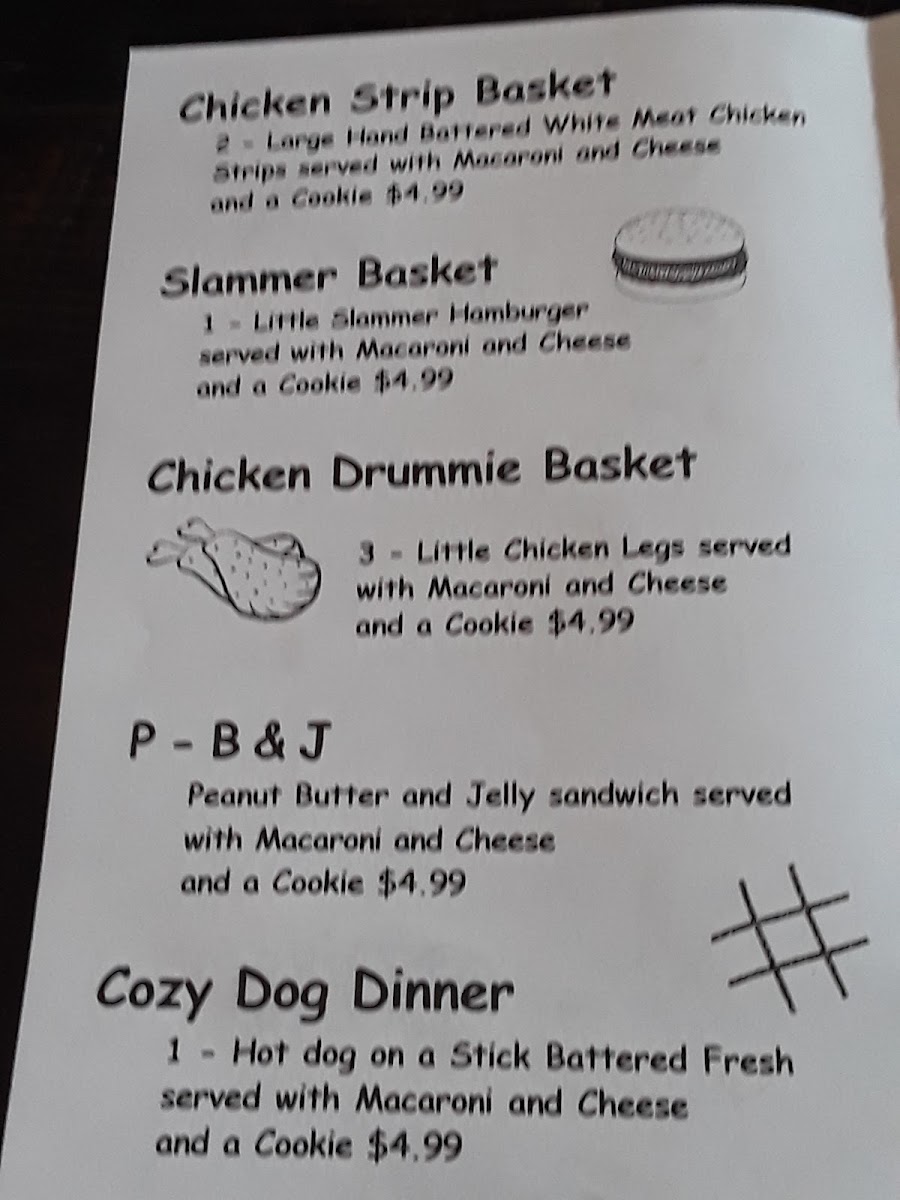 Chicken Strip Basket
2 - Large Hand Battered White Meat Chicken
Strips served with Macaroni and Cheese
and a Cookie $4.99
Slammer Basket
1 - Little Slammer Hamburger
served with Macaroni and Cheese
and a Cookie $4.99
Chicken Drummie Basket
3 - Little Chicken Legs served
with Macaroni and Cheese
and a Cookie $4.99
P - B & J
Peanut Butter and Jelly sandwich served
with Macaroni and Cheese
and a Cookie $4.99
Cozy Dog Dinner
1 - Hot dog on a Stick Battered Fresh
served with Macaroni and Cheese
and a Cookie $4.99